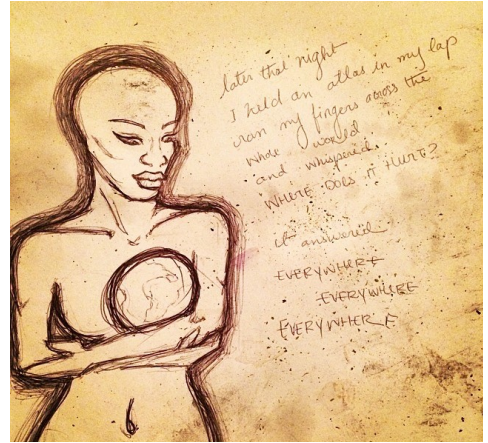 later that night
I held an atlas in my lap
ran my fingers across the
whole world
and whispered
WHERE DOES IT HURT?
it answered
EVERYWHERE
EVERYWHERE
EVERYWHERE